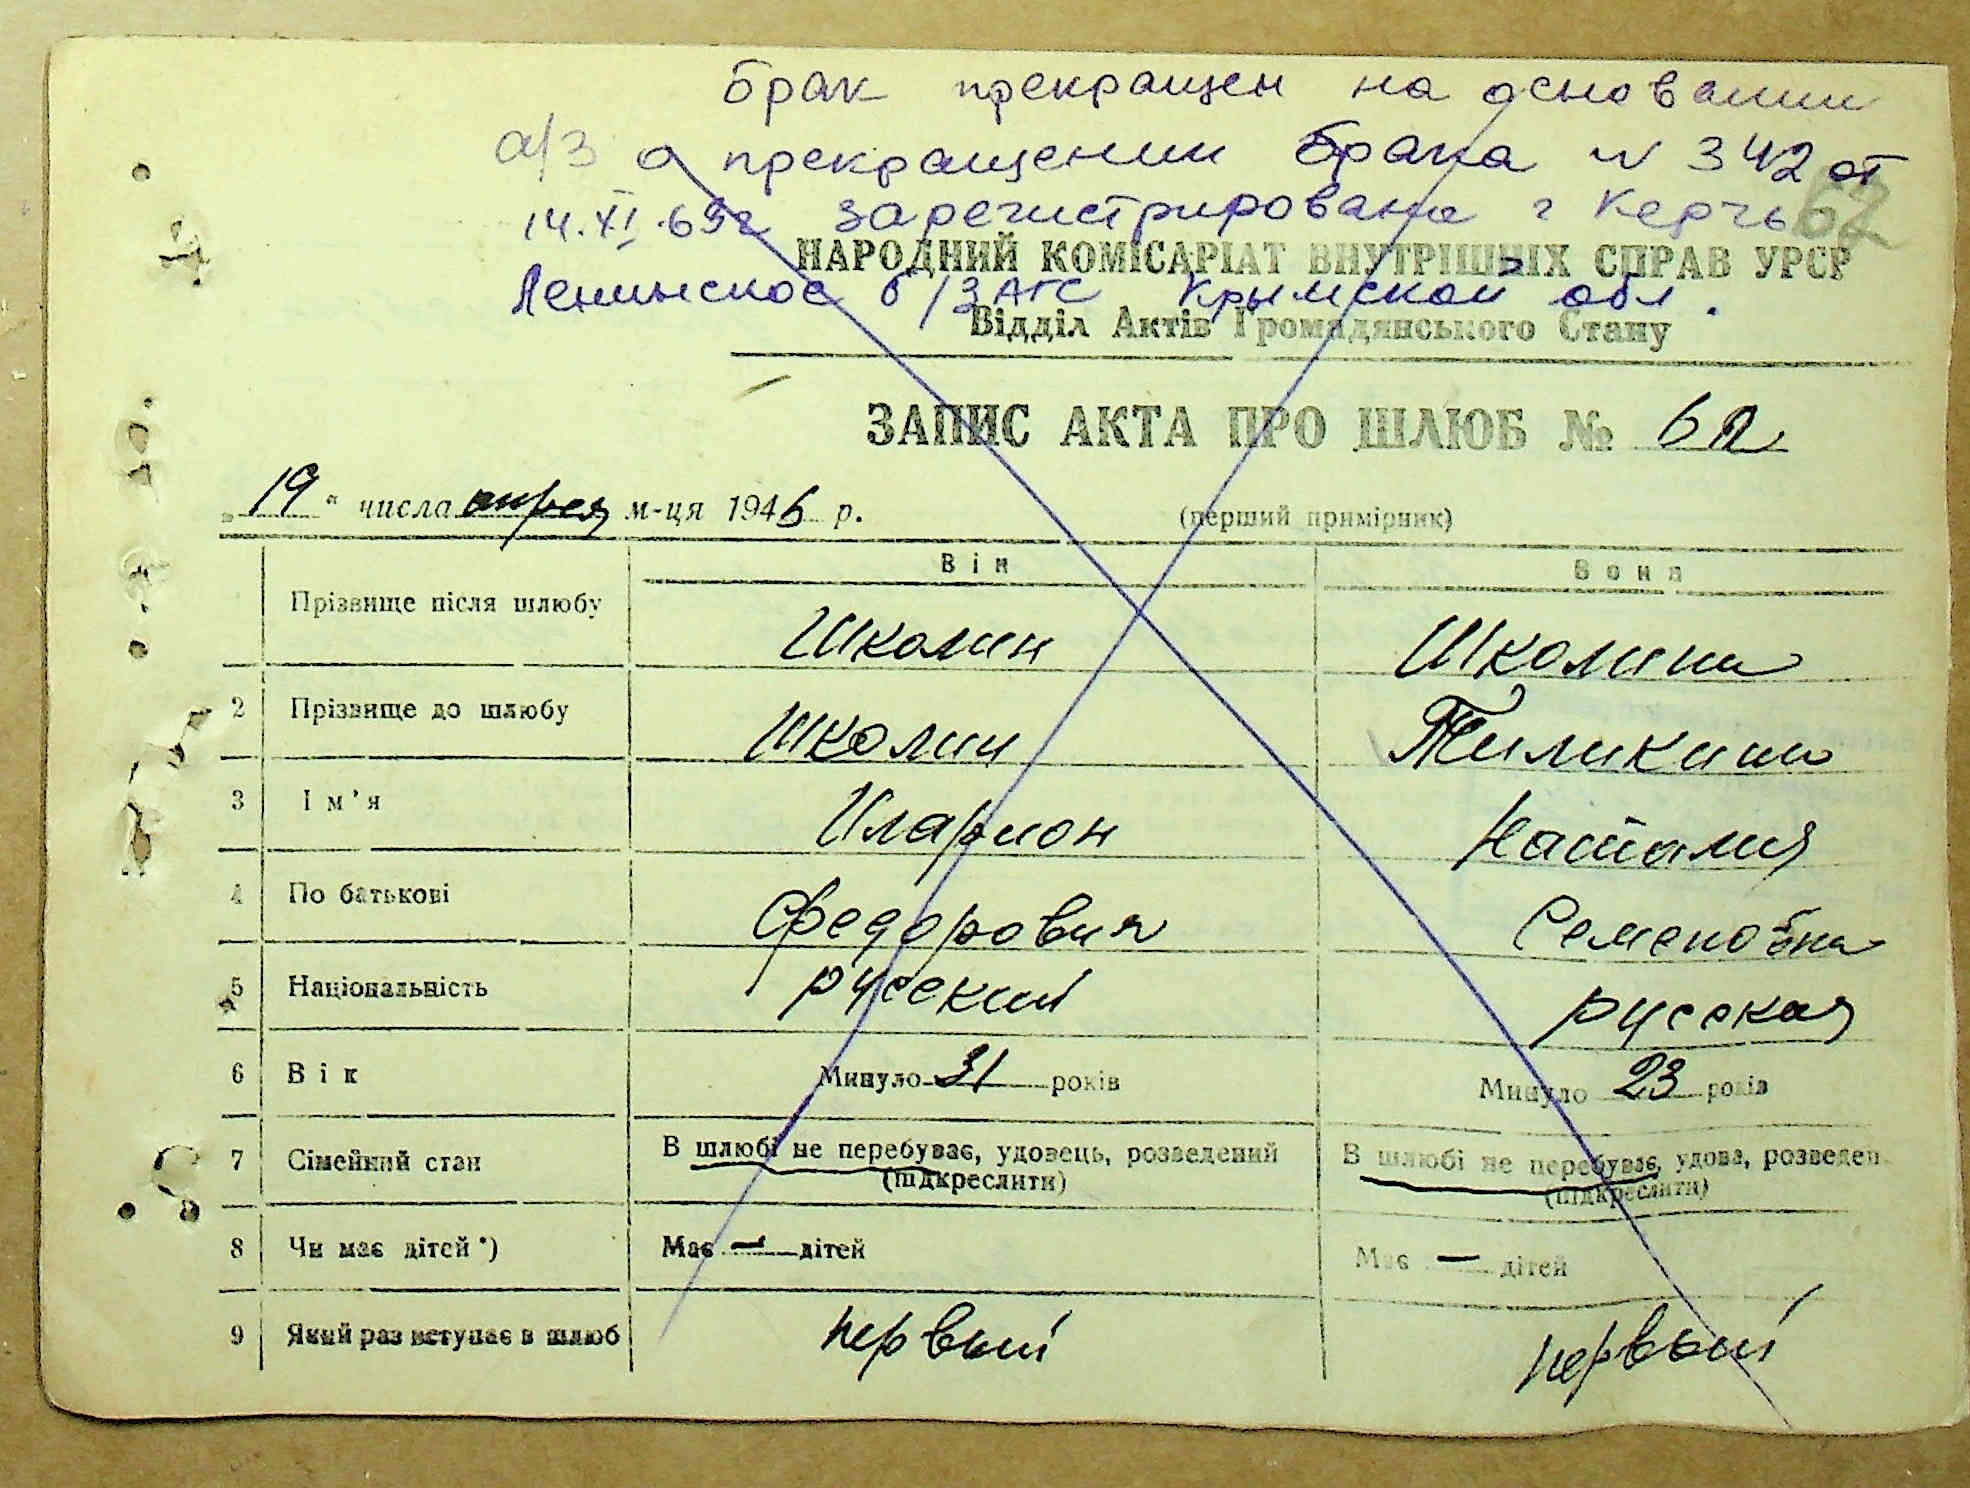 Брак прекращен на основании
а/з о прекращении брака N 342 от
14.XI.69г зарегистрировано г Керчь
62
НАРОДНИЙ КОМІСАРІАТ ВНУТРІШНІХ СПРАВ УРСР
Ленинское б/ЗАГС Крымской обл.
Відділ Актів Громадянського Стану
ЗАПИС АКТА ПРО ШЛЮБ № 62
„19“ числа апреля м-ця 1946 р.
(перший примірник)
Він Вона
Прізвище після шлюбу Школин Школина
2 Прізвище до шлюбу Школин
3 Ім'я Иларион Наталия
4 По батькові Федорович Семеновна
5 Національність русский русская
6 Вік Минуло 31 років Минуло 23 років
7 Сімейний стан В шлюбі не перебуває, удовець, розведений В шлюбі не перебуває, удова, розведен
(підкреслити) (підкреслити)
8 Чи має дітей *) Має — дітей Має — дітей
9 Який раз вступає в шлюб первый первый